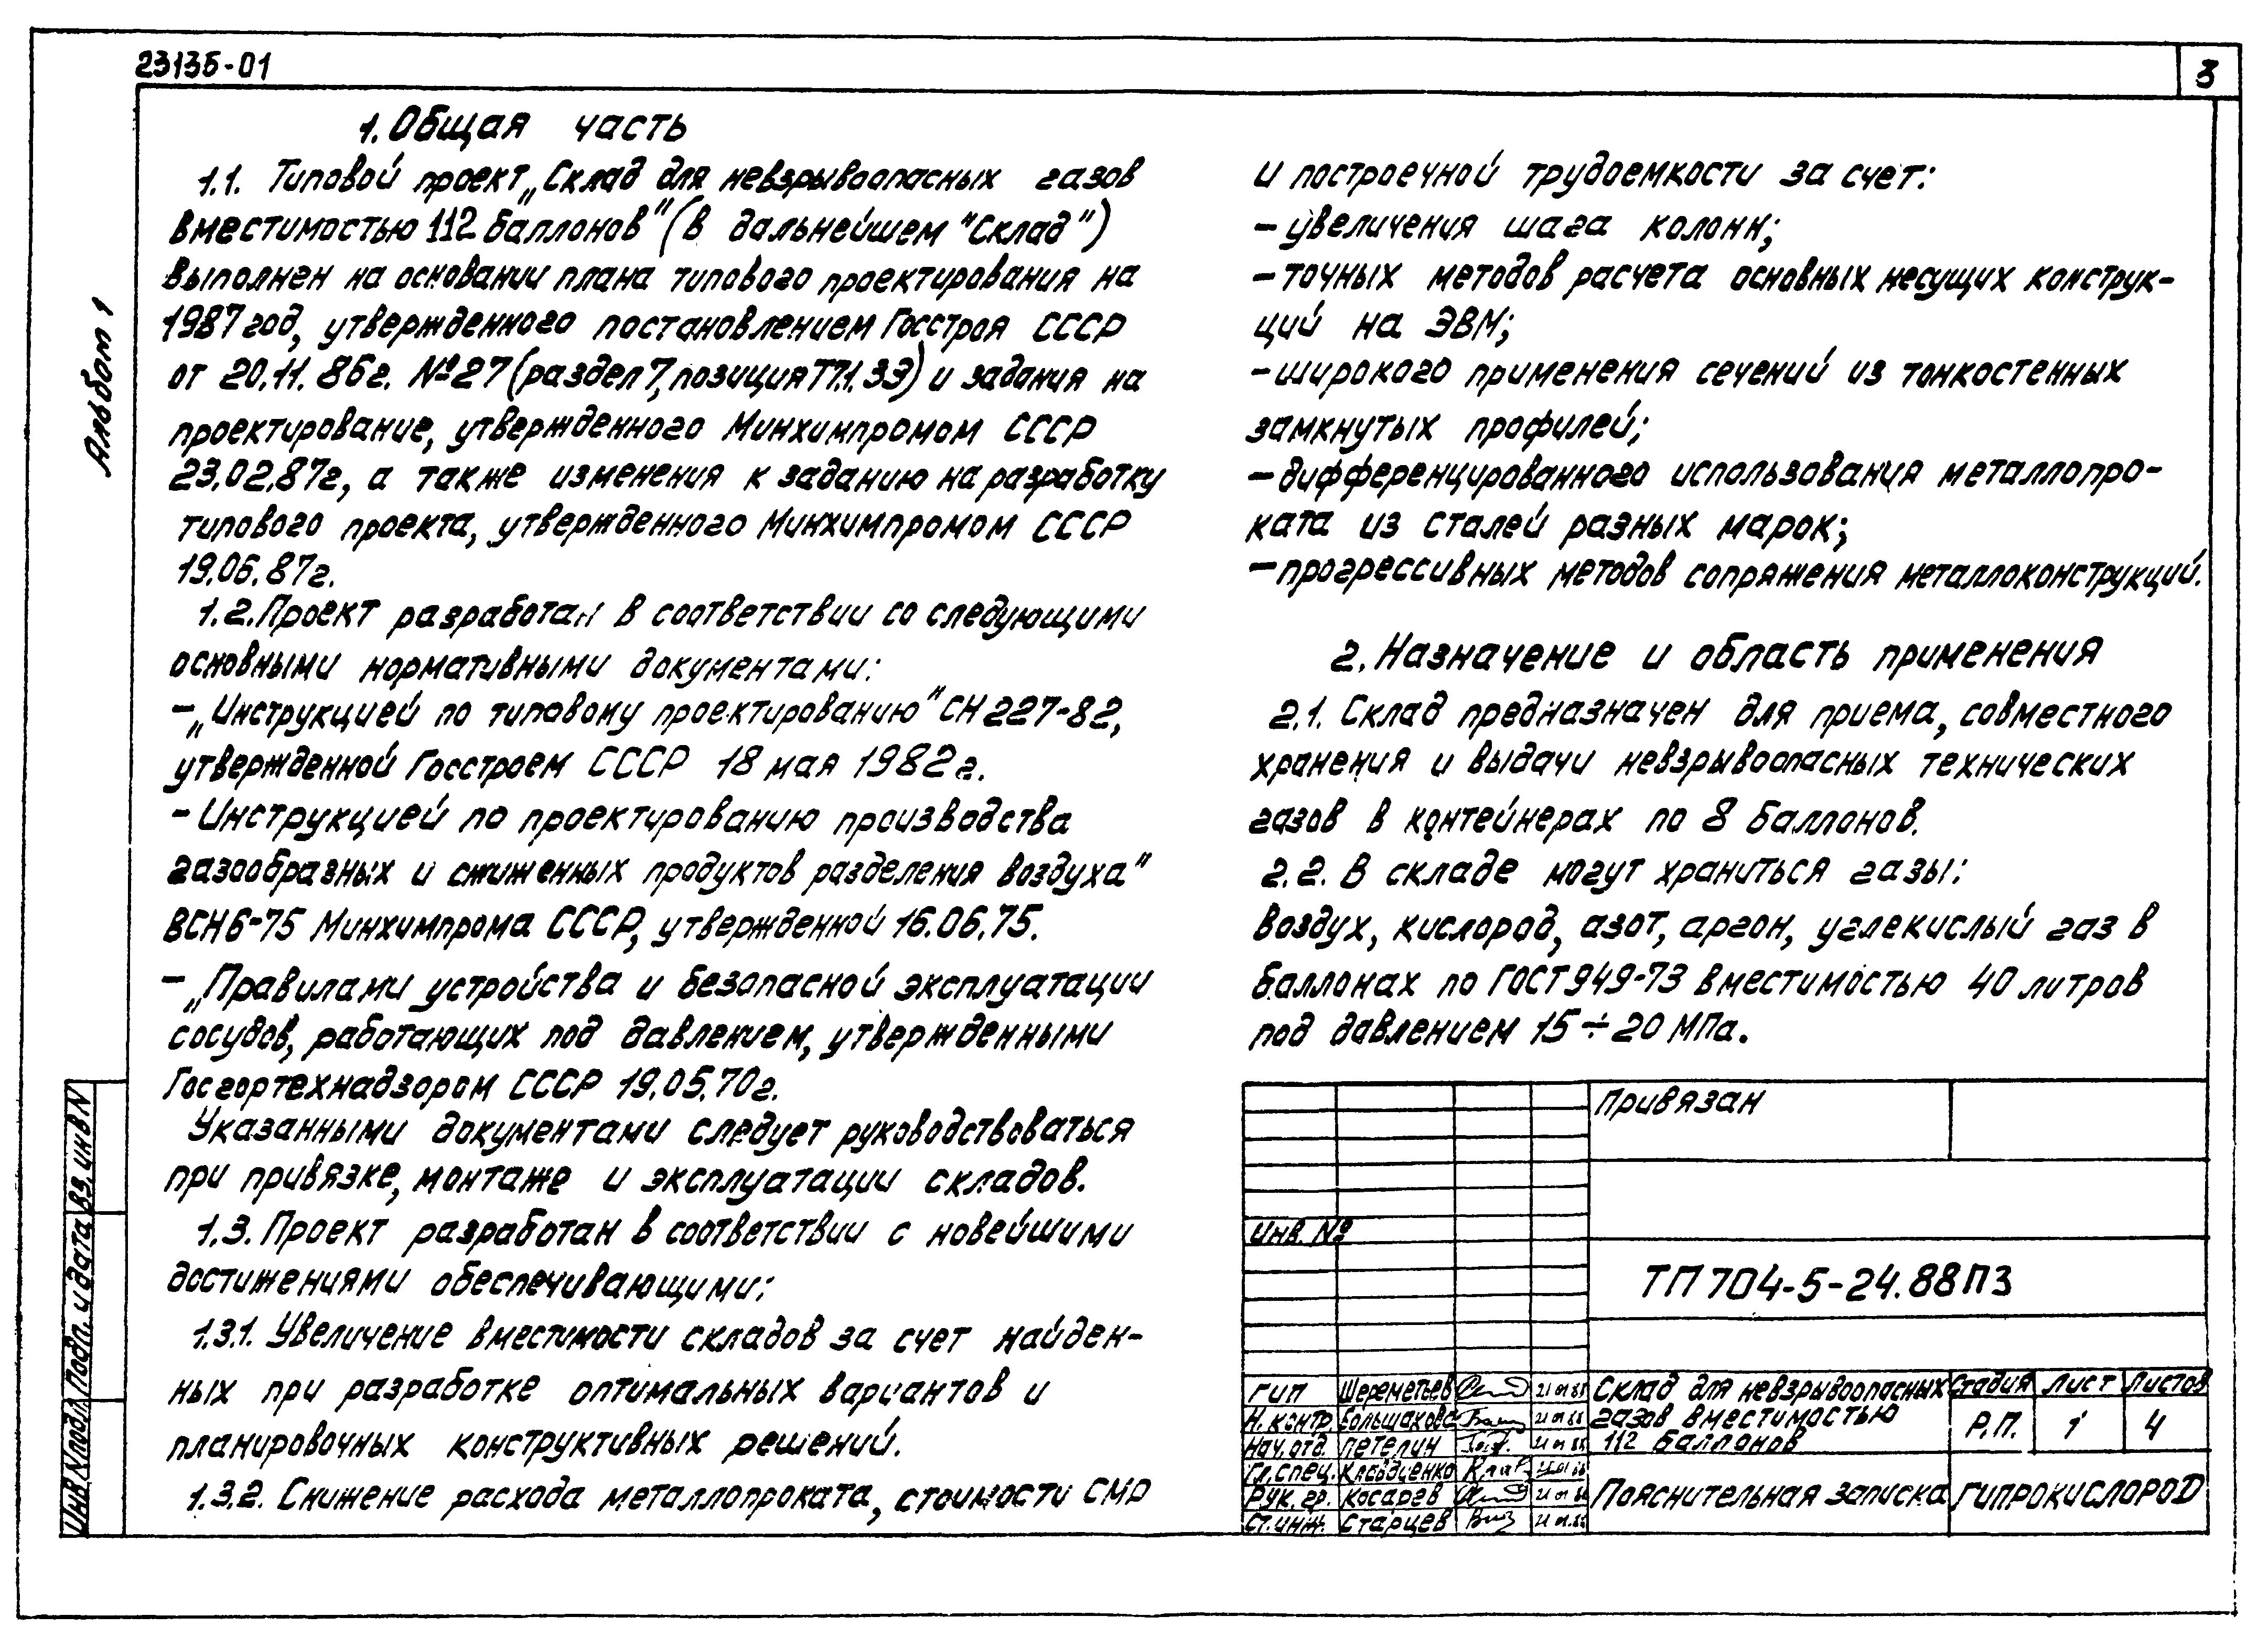 23136-01
3
Альбом 1
1. Общая часть
1.1. Типовой проект „Склад для невзрывоопасных газов
вместимостью 112 баллонов" (в дальнейшем "Склад")
выполнен на основании плана типового проектирования на
1987 год, утвержденного постановлением Госстроя СССР
от 20.11.86г. №27 (раздел 7, позиция Т7.1.39) и задания на
проектирование, утвержденного Минхимпромом СССР
23.02.87г, а также изменения к заданию на разработку
типового проекта, утвержденного Минхимпромом СССР
19.06.87г.
1.2. Проект разработан в соответствии со следующими
основными нормативными документами:
– „Инструкцией по типовому проектированию" СН 227-82,
утвержденной Госстроем СССР 18 мая 1982г.
– Инструкцией по проектированию производства
газообразных и сжиженных продуктов разделения воздуха"
ВСН6-75 Минхимпрома СССР, утвержденной 16.06.75.
– „Правилами устройства и безопасной эксплуатации
сосудов, работающих под давлением, утвержденными
Госгортехнадзором СССР 19.05.70г.
Указанными документами следует руководствоваться
при привязке, монтаже и эксплуатации складов.
1.3. Проект разработан в соответствии с новейшими
достижениями обеспечивающими:
1.3.1. Увеличение вместимости складов за счет найден-
ных при разработке оптимальных вариантов и
планировочных конструктивных решений.
1.3.2. Снижение расхода металлопроката, стоимости СМР
и построечной трудоемкости за счет:
– увеличения шага колонн;
– точных методов расчета основных несущих конструк-
ций на ЭВМ;
– широкого применения сечений из тонкостенных
замкнутых профилей;
– дифференцированного использования металлопро-
ката из сталей разных марок;
– прогрессивных методов сопряжения металлоконструкций.
2. Назначение и область применения
2.1. Склад предназначен для приема, совместного
хранения и выдачи невзрывоопасных технических
газов в контейнерах по 8 баллонов.
2.2. В складе могут храниться газы:
воздух, кислород, азот, аргон, углекислый газ в
баллонах по ГОСТ 949-73 вместимостью 40 литров
под давлением 15÷20 МПа.
Привязан
Инв. №
ТП 704-5-24.88 ПЗ
ГИП Шереметьев 21 01 88
Н. контр. Большакова 21 01 88
Нач. отд. Петелин 21 01 88
Гл. спец. Клевцов
Рук. гр. Косарев 21 01 88
Ст. инж. Старцев 21 01.88
Склад для невзрывоопасных
газов вместимостью
112 баллонов
Стадия Лист Листов
Р.П. 1 4
Пояснительная записка
ГИПРОКИСЛОРОД
Инв. N подл. Подп. и дата Вз. инв N